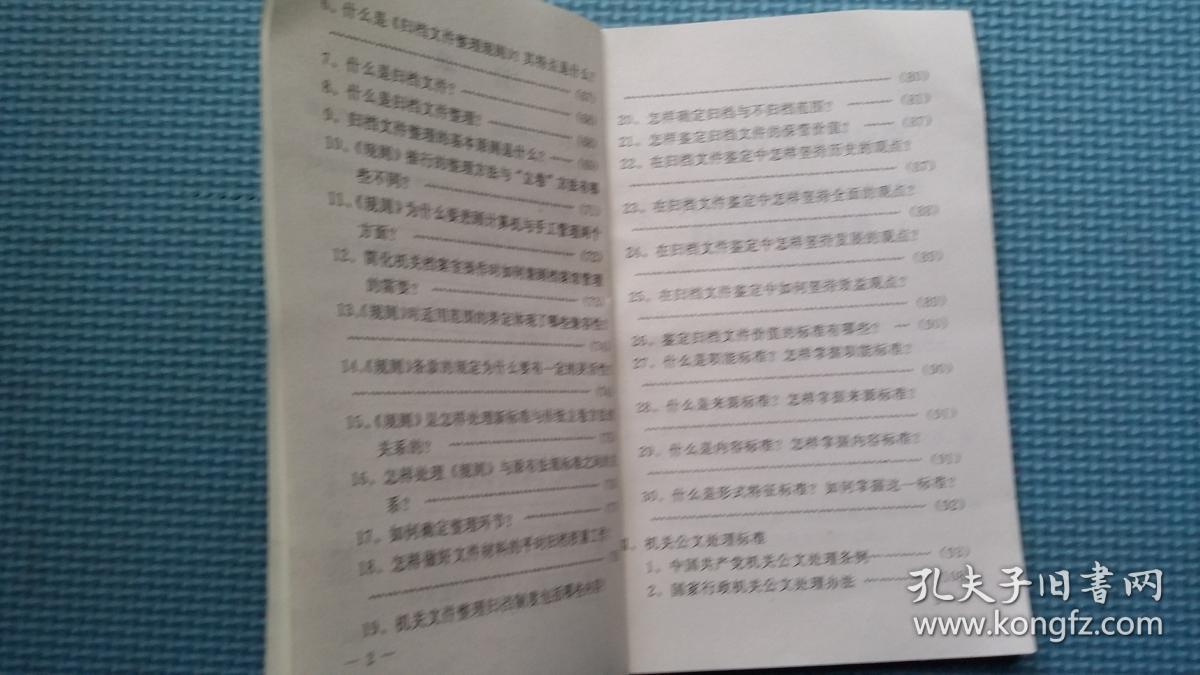 6、什么是《归档文件整理规则》？其特点是什么？
7、什么是归档文件？ (67)
8、什么是归档文件整理？ (68)
9、归档文件整理的基本原则是什么？ (69)
10、《规则》推行的整理方法与“立卷”方法有哪
些不同？ (71)
11、《规则》为什么要兼顾计算机与手工管理两个
方面？ (72)
12、简化机关档案室操作时如何兼顾档案馆管理
的需要？ (73)
13、《规则》对适用范围的界定体现了哪些兼容性？
(74)
14、《规则》条款的规定为什么要有一定的灵活性？
(74)
15、《规则》是怎样处理新标准与传统立卷方法
关系的？
16、怎样处理《规则》与原有法规标准之间的
系？
17、如何确定整理环节？
18、怎样做好文件材料的平时归档积累工作？
19、机关文件整理归档制度包括哪些内容？
— 2 —
20、怎样确定归档与不归档范围？
21、怎样鉴定归档文件的保管价值？ (87)
22、在归档文件鉴定中怎样坚持历史的观点？
(87)
23、在归档文件鉴定中怎样坚持全面的观点？
(88)
24、在归档文件鉴定中怎样坚持发展的观点？
(89)
25、在归档文件鉴定中如何坚持效益观点？
(89)
26、鉴定归档文件价值的标准有哪些？ (90)
27、什么是职能标准？怎样掌握职能标准？
(90)
28、什么是来源标准？怎样掌握来源标准？
29、什么是内容标准？怎样掌握内容标准？
30、什么是形式特征标准？如何掌握这一标准？
(92)
机关公文处理标准
1、中国共产党机关公文处理条例 (93)
2、国家行政机关公文处理办法
孔夫子旧书网
www.kongfz.com